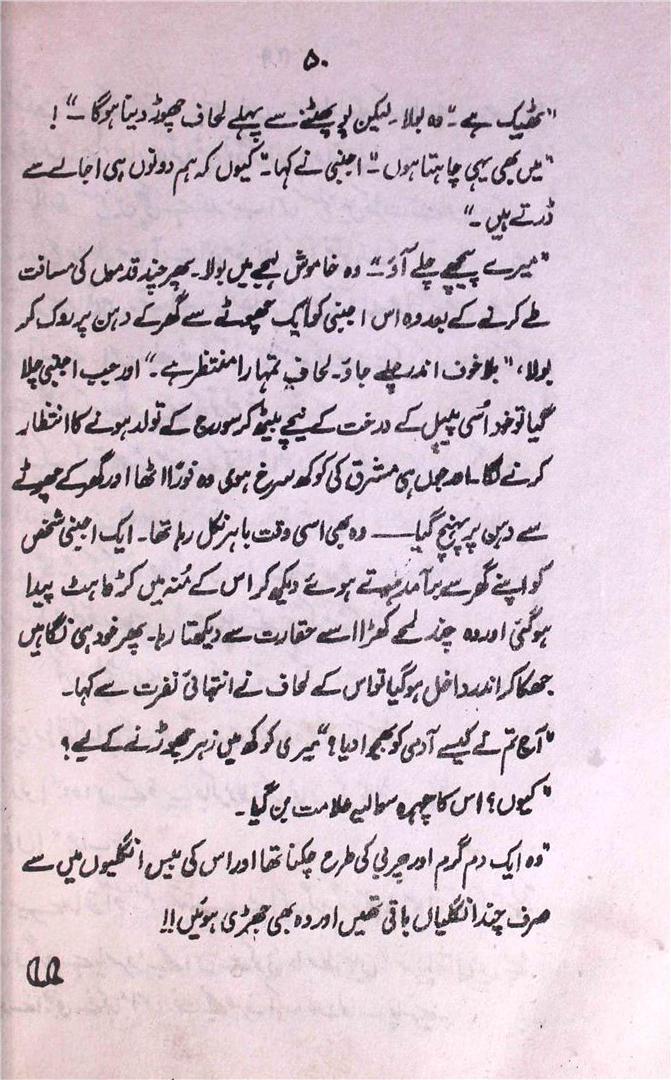 ۵۰
"ٹھیک ہے۔" وہ بولا۔ لیکن پو پھٹنے سے پہلے لحاف چھوڑ دینا ہوگا۔"!
"میں بھی یہی چاہتا ہوں۔" اجنبی نے کہا۔ "کیوں کہ ہم دونوں ہی اجالے سے
ڈرتے ہیں۔"
"میرے پیچھے چلے آؤ۔" وہ خاموش لہجے میں بولا۔ پھر چند قدموں کی مسافت
طے کرنے کے بعد وہ اس اجنبی کو ایک چھوٹے سے گھر کے دہن پر روک کر
بولا، "بلا خوف اندر چلے جاؤ۔ لحاف تمہارا منتظر ہے۔" اور جب اجنبی چلا
گیا تو خود اُسی پیپل کے درخت کے نیچے بیٹھ کر سورج کے تولد ہونے کا انتظار
کرنے لگا۔ اور جوں ہی مشرق کی کوکھ سرخ ہوئی وہ فوراً اٹھا اور گھر کے چھوٹے
سے دہن پر پہنچ گیا —— وہ بھی اسی وقت باہر نکل رہا تھا۔ ایک اجنبی شخص
کو اپنے گھر سے برآمد ہوتے ہوئے دیکھ کر اس کے مُنہ میں کڑواہٹ پیدا
ہوگئی اور وہ چند لمحے کھڑا اسے حقارت سے دیکھتا رہا۔ پھر خود ہی نگاہیں
جھکا کر اندر داخل ہوگیا تو اس کے لحاف نے انتہائی نفرت سے کہا۔
"آج تم نے کیسے آدمی کو بھجوا دیا؟" میری کوکھ میں زہر چھوڑنے کے لیے؟
"کیوں؟ اس کا چہرہ سوالیہ علامت بن گیا۔
"وہ ایک دم گرم اور چربی کی طرح چکنا تھا اور اس کی بیس انگلیوں میں سے
صرف چند انگلیاں باقی تھیں اور وہ بھی جھڑی ہوئیں!!